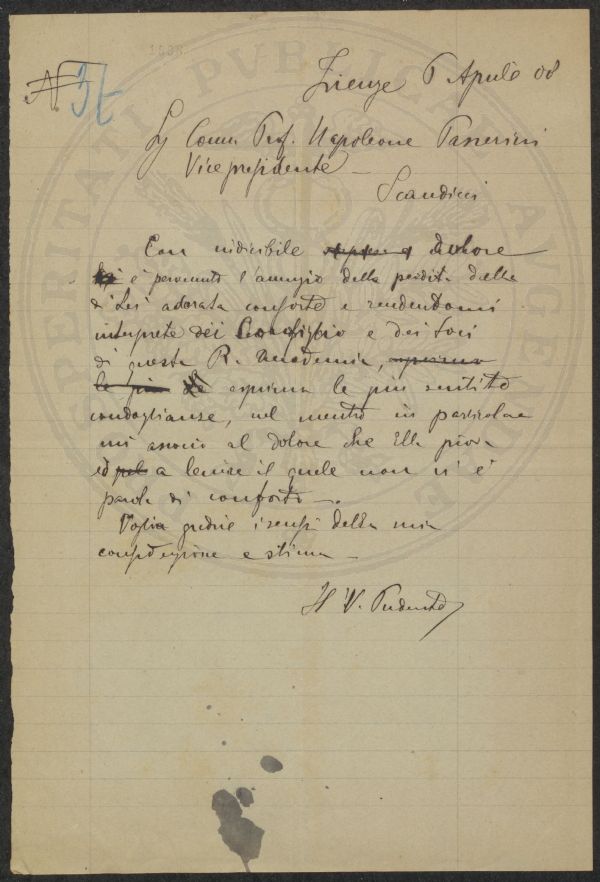 1908
N. 37
Firenze 6 Aprile 08
Sg Comm Prof. Napoleone Passerini
Vicepresidente
Scandicci
Con indicibile dolore
è pervenuto l'annuzio della perdita della
di Lei adorata consorte e rendendomi
interprete dei Consiglio e dei Soci
di questa R. Accademia,
esprimo le più sentite
condoglianze, nel mentre in particolare
mi associo al dolore che Ella prova
ed a lenire il quale non vi è
parola di conforto.
Voglia gradire i sensi della mia
considerazione e stima
Il V. Presidente
PROSPERITATI PVBLICAE AVGENDAE